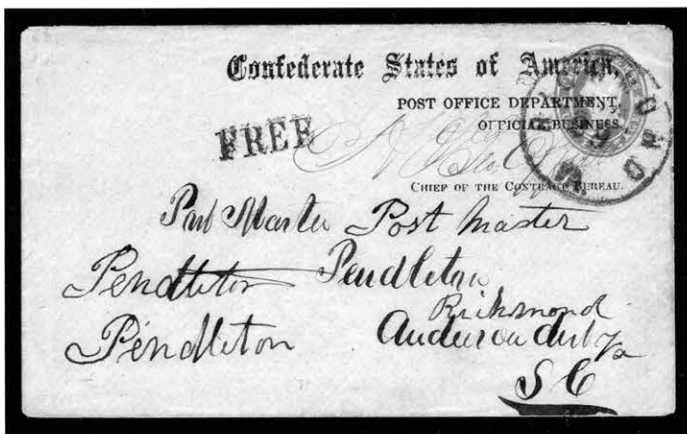 Confederate States of America,
POST OFFICE DEPARTMENT,
OFFICIAL BUSINESS.
FREE
CHIEF OF THE CONTRACT BUREAU.
Post Master Post Master
Pendleton Pendleton
Richmond
Pendleton Anderson
S C